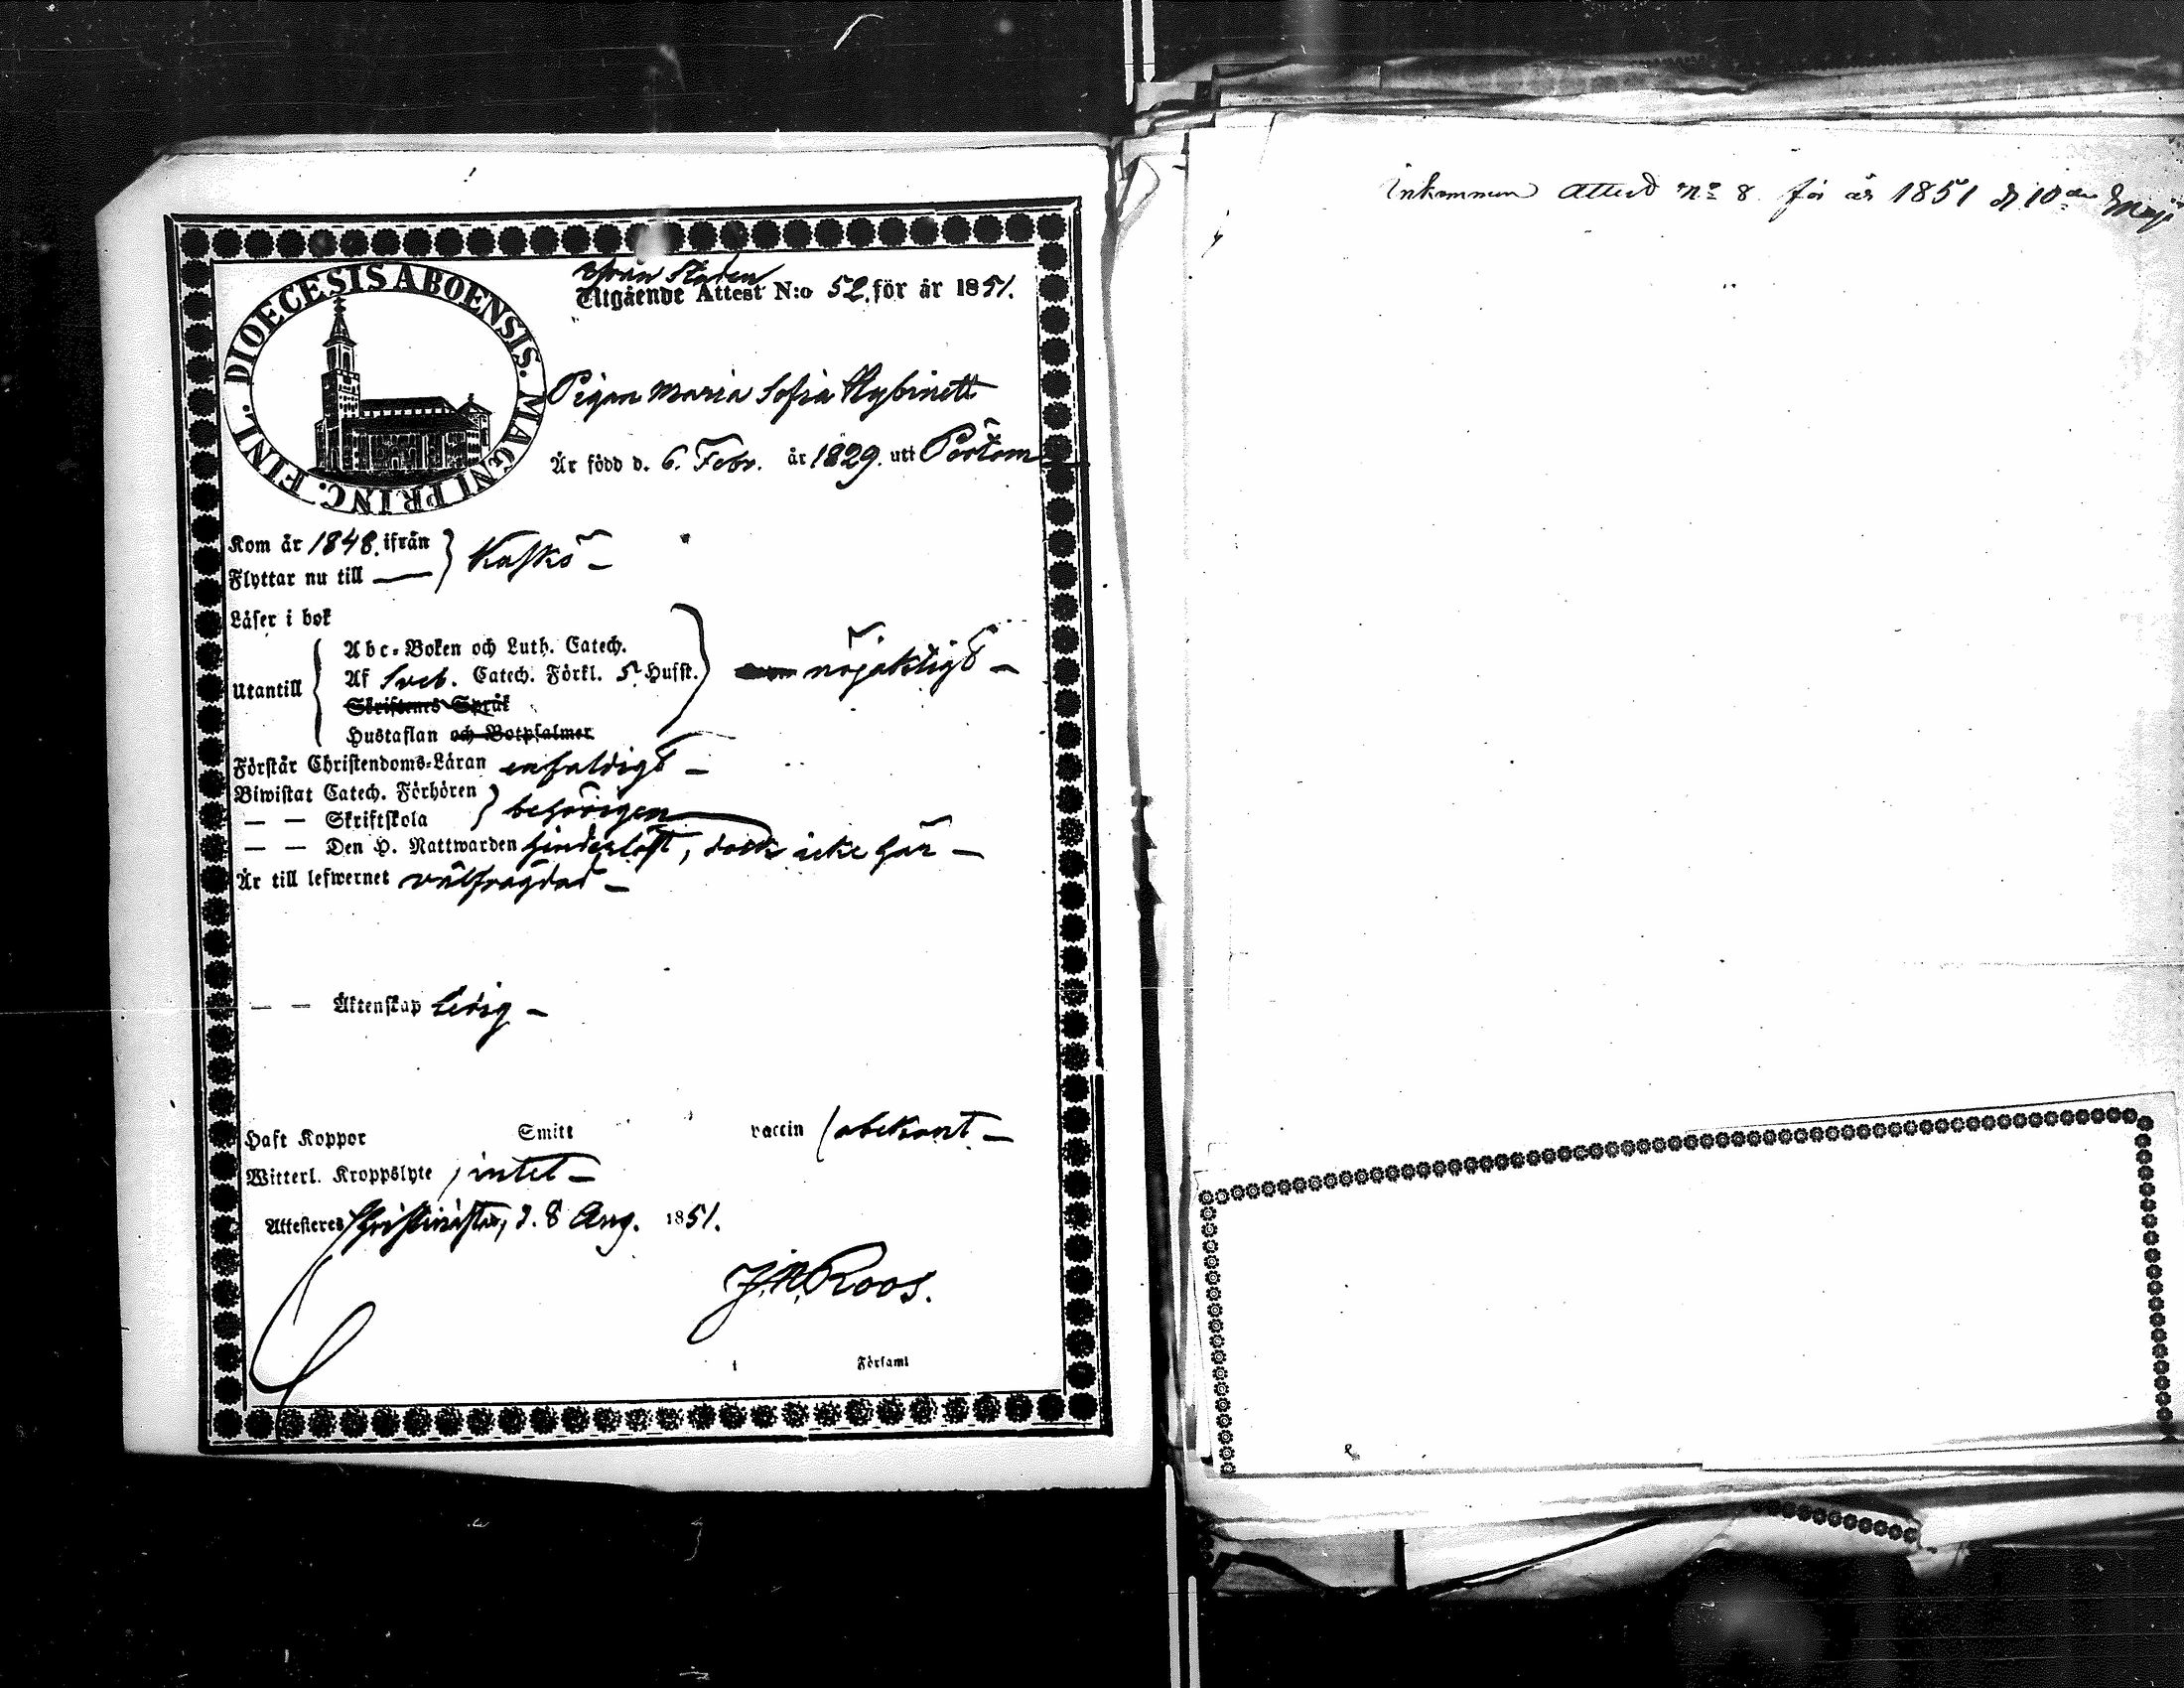 DIOECESIS ABOENSIS. MAGNI PRINC. FINL.
ifrån Staden
Utgående Attest N:o 52. för år 1851.
Pigan Maria Sofia Nybinett
Är född d. 6. Febr. år 1829. uti Pörtom
Kom år 1848. ifrån
Flyttar nu till —
} Kaskö —
Läser i bok
Utantill
Abc-Boken och Luth. Catech.
Af Sveb. Catech. Förkl. 5 Husst.
nöjaktigt —
Skriftenes Språk
Hustaflan och Botpsalmer
Förstår Christendoms-Läran enfaldigt —
Biwistat Catech. Förhören
— — Skriftskola
} behörigen
— — Den H. Nattwarden hinderlöst, dock icke här —
Är till lefwernet välfrägdad —
— — Äktenskap ledig —
Haft Koppor Smitt vaccin / obekant —
Witterl. Kroppslyte / intet —
Attesteres Christinestad, d. 8 Aug. 1851.
J. N. Roos.
i Församl
Inkommen Attest No 8 för år 1851 d 10de Maji